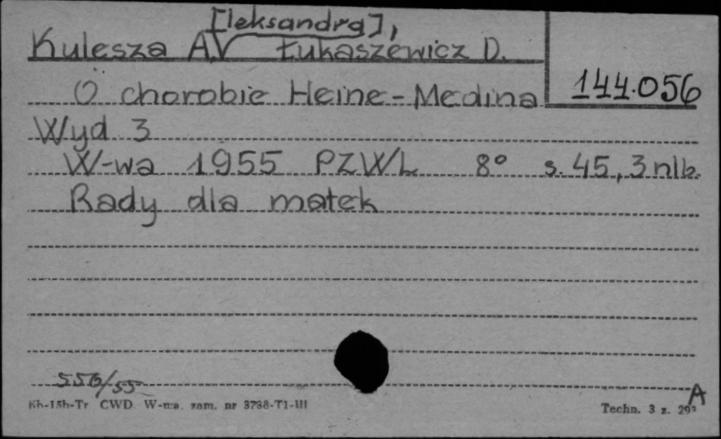 [leksandra],
Kulesza A. Łukaszewicz D.
144.056
O chorobie Heine-Medina
Wyd 3
W-wa 1955 PZWL 8° s. 45, 3 nlb.
Rady dla matek
556/55
Kh-15h-Tr CWD W-wa. zam. nr 3798-T1-III
Techn. 3 z. 29
A